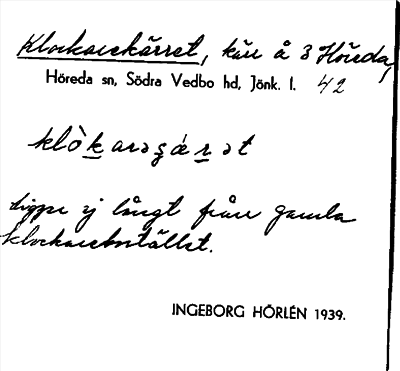 Klockarekärret, kärr å 3 Höreda,
Höreda sn, Södra Vedbo hd, Jönk. l. 42
klò̀karəʂǽrət
ligger ej långt från gamla
klockarebostället.
INGEBORG HÖRLÉN 1939.